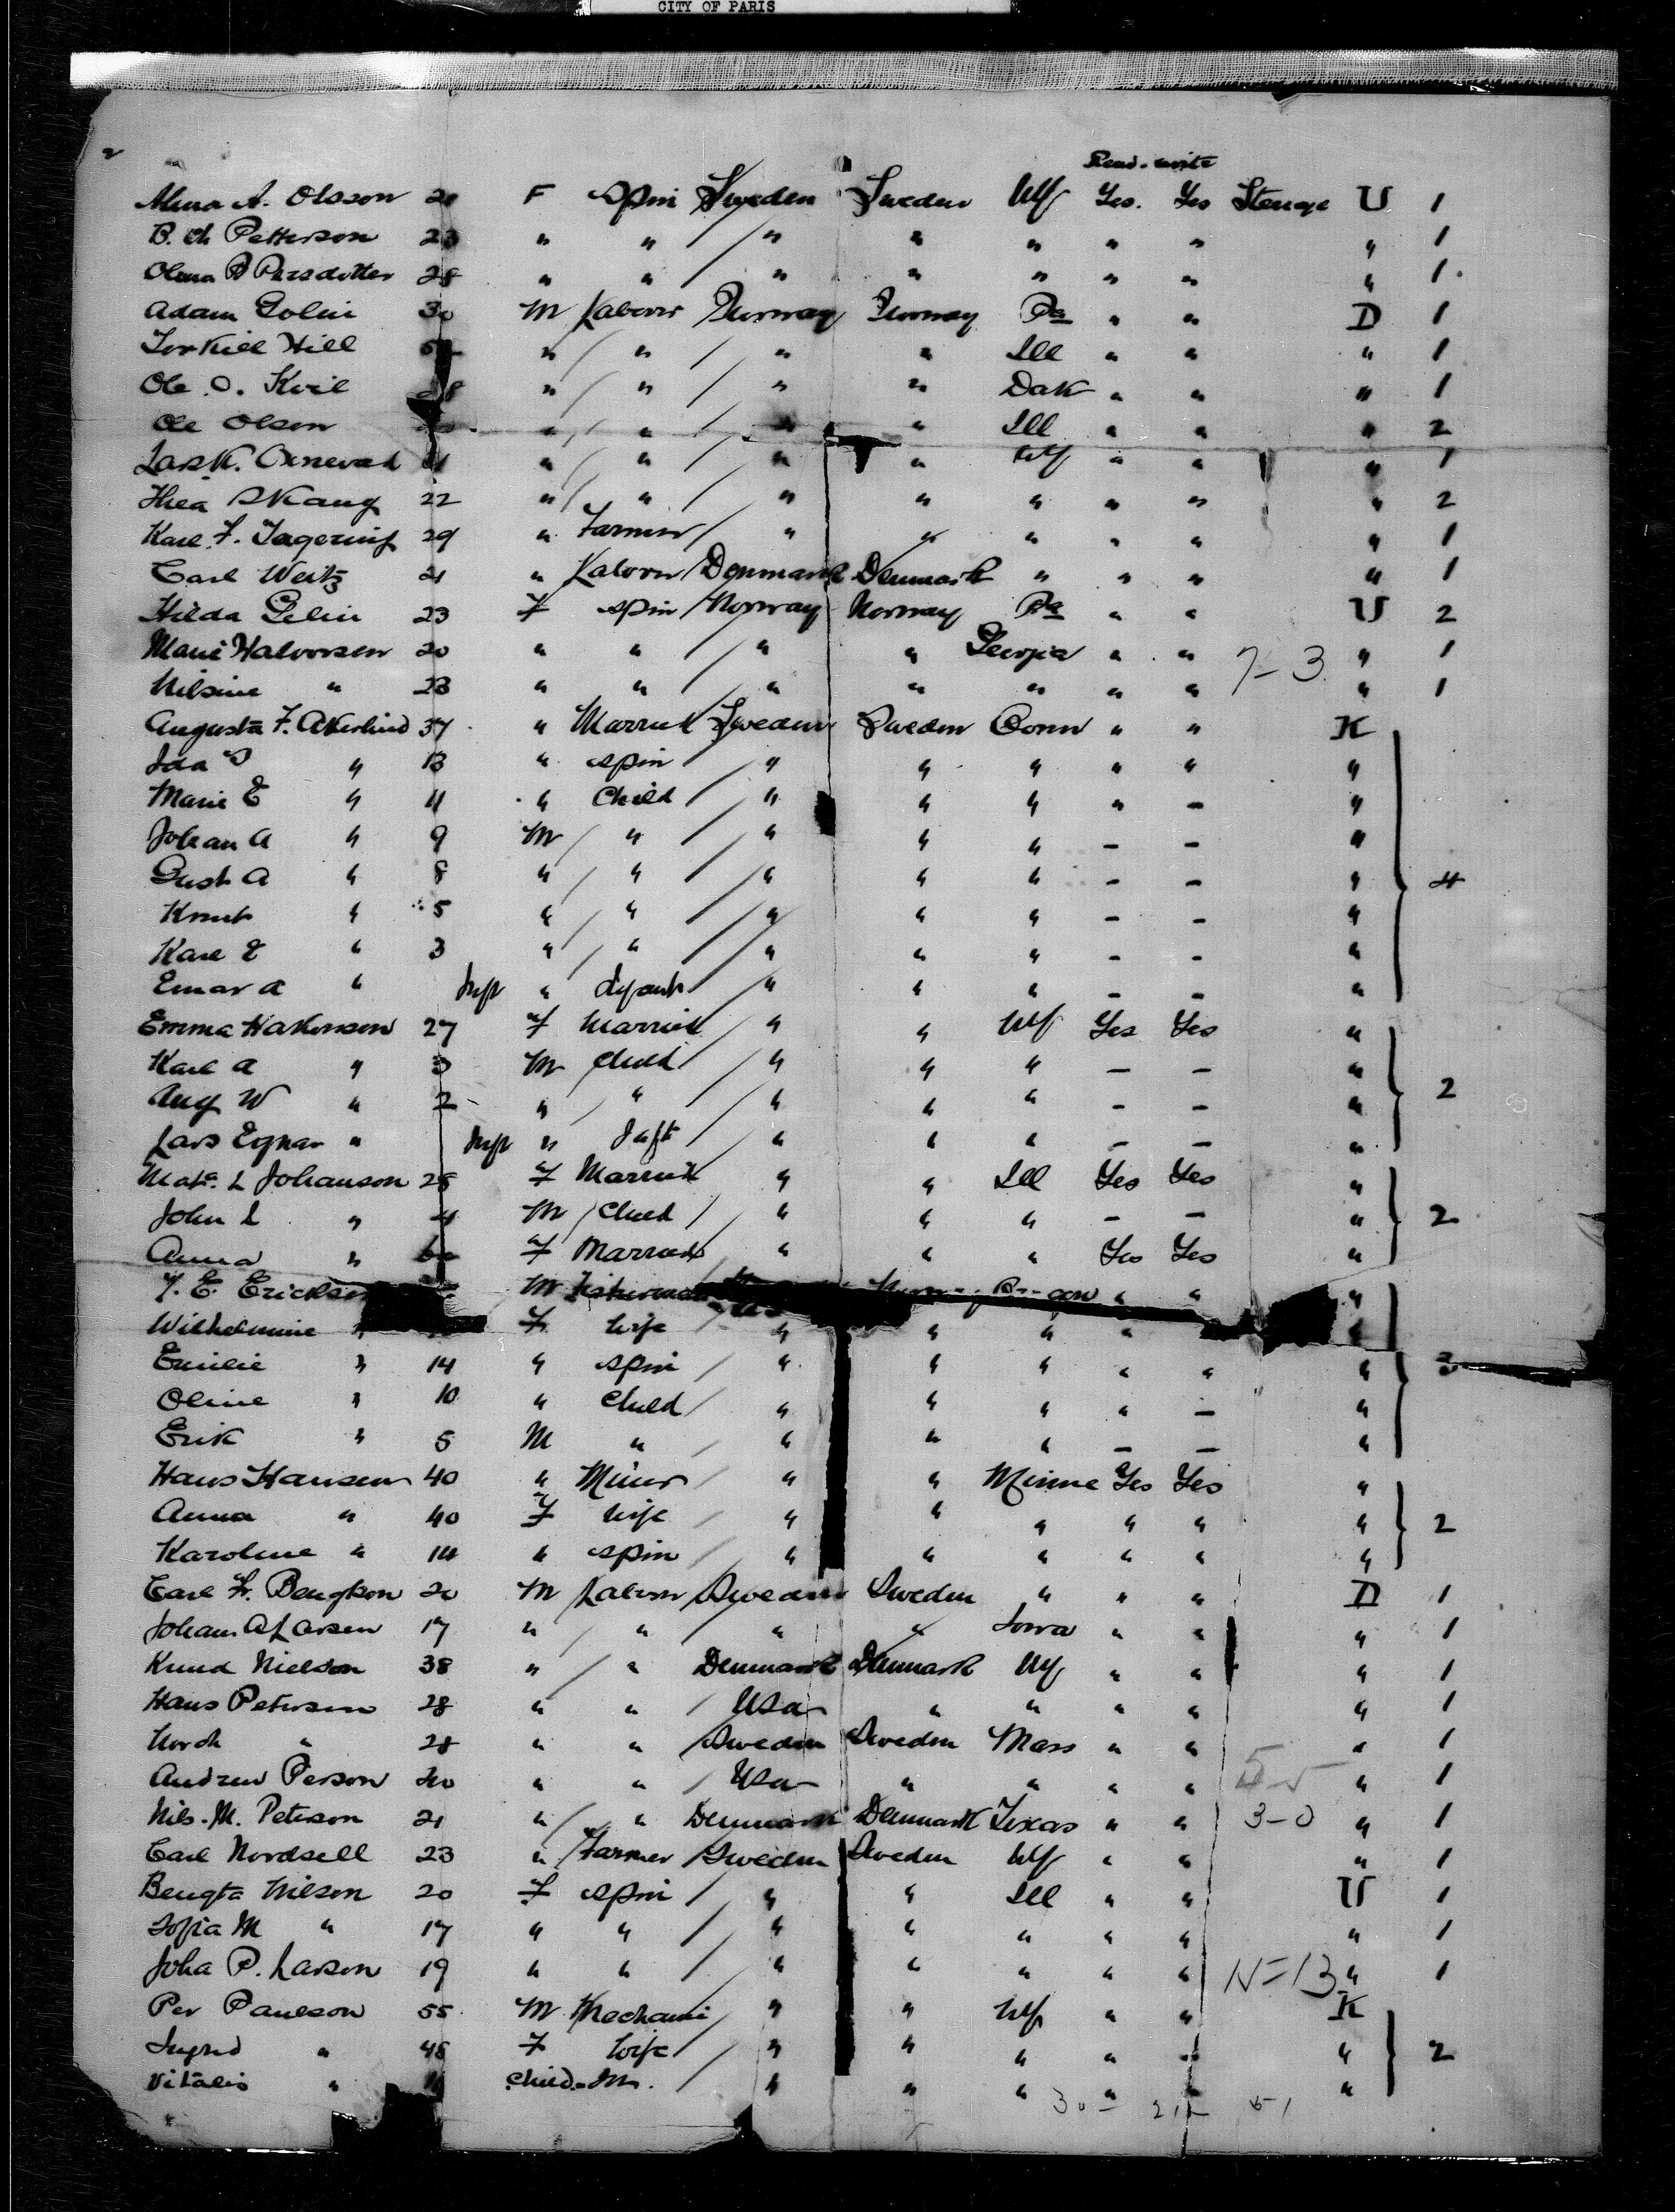 CITY OF PARIS
2
Read. write
Alma A. Olsson 20 F Spin Sweden Sweden NY Yes. Yes Steerage U 1
B. Ch Petterson 23 " " " " " " " " 1
Olena P Persdotter 28 " " " " " " " " 1.
Adam Golin 30 M Laborer Norway Norway Pa " " D 1
Torkill Hill " " " " Ill " " " 1
Ole O. Kvil 28 " " " " Dak " " " 1
Ole Olson " " " " Ill " " " 2
Lars K. " " " " NY " " " 1
Thea Skaug 22 " " " " " " " " 2
Karl F. 29 " Farmer " " " " " " 1
Carl Weitz 21 " Laborer Denmark Denmark " " " " 1
Hilda Gelin 23 F spin Norway Norway Pa " " U 2
Marie Halvorsen 20 " " " " Georgia " " 7-3 " 1
Nilsine " 23 " " " " " " " " 1
Augusta F. Akerlind 37 " Married Sweden Sweden Conn " " K
Ida " 13 " spin " " " " " "
Marie E " 11 " Child " " " " - "
Johan A " 9 M " " " " - - "
Gust A " 8 " " " " " - - " 4
Knut " 5 " " " " " - - "
Karl E " 3 " " " " " - - "
Einar A " Inft " Infant " " " - - "
Emma Hakonson 27 F Married " " NY Yes Yes "
Karl A " 3 M Child " " " - - "
Aug W " 2 " " " " " - - " 2
Lars Egnar " Inft " Inft " " " - - "
L Johanson 28 F Married " " Ill Yes Yes "
John L " 4 M Child " " " - - " 2
Anna " F Married " " " Yes Yes "
E. Erickson M Fisherman " " "
Wilhelmine " F wife " " " " "
Emilie " 14 " spin " " " " " "
Oline " 10 " Child " " " " - "
Erik " 5 M " " " " - - "
Hans Hansen 40 " Miner " " Minne Yes Yes "
Anna " 40 F wife " " " " " " 2
Karoline " 14 " spin " " " " " "
Carl Fr. Bengtson 20 M Laborer Sweden Sweden " " " D 1
Johan A Larsen 17 " " " " Iowa " " " 1
Knud Nielson 38 " " Denmark Denmark NY " " " 1
Hans Peterson 28 " " USa " " " " " 1
" 28 " " Sweden Sweden Mass " " " 1
Andrew Person 20 " " USa " " " " 5-5 " 1
Nils. M. Peterson 21 " " Denmark Denmark Texas " " 3-0 " 1
Carl Nordsell 23 " Farmer Sweden Sweden NY " " " 1
Bengta Nilson 20 F spin " " Ill " " U 1
Sofia M " 17 " " " " " " " " 1
Joha P. Larson 19 " " " " " " " N=13 " 1
Per Paulson 55 M Mechanic " " NY " " K
Ingrid " 48 F wife " " " " " " 2
Vitalis " 11 Child - M. " " " " "
30 - 21 51